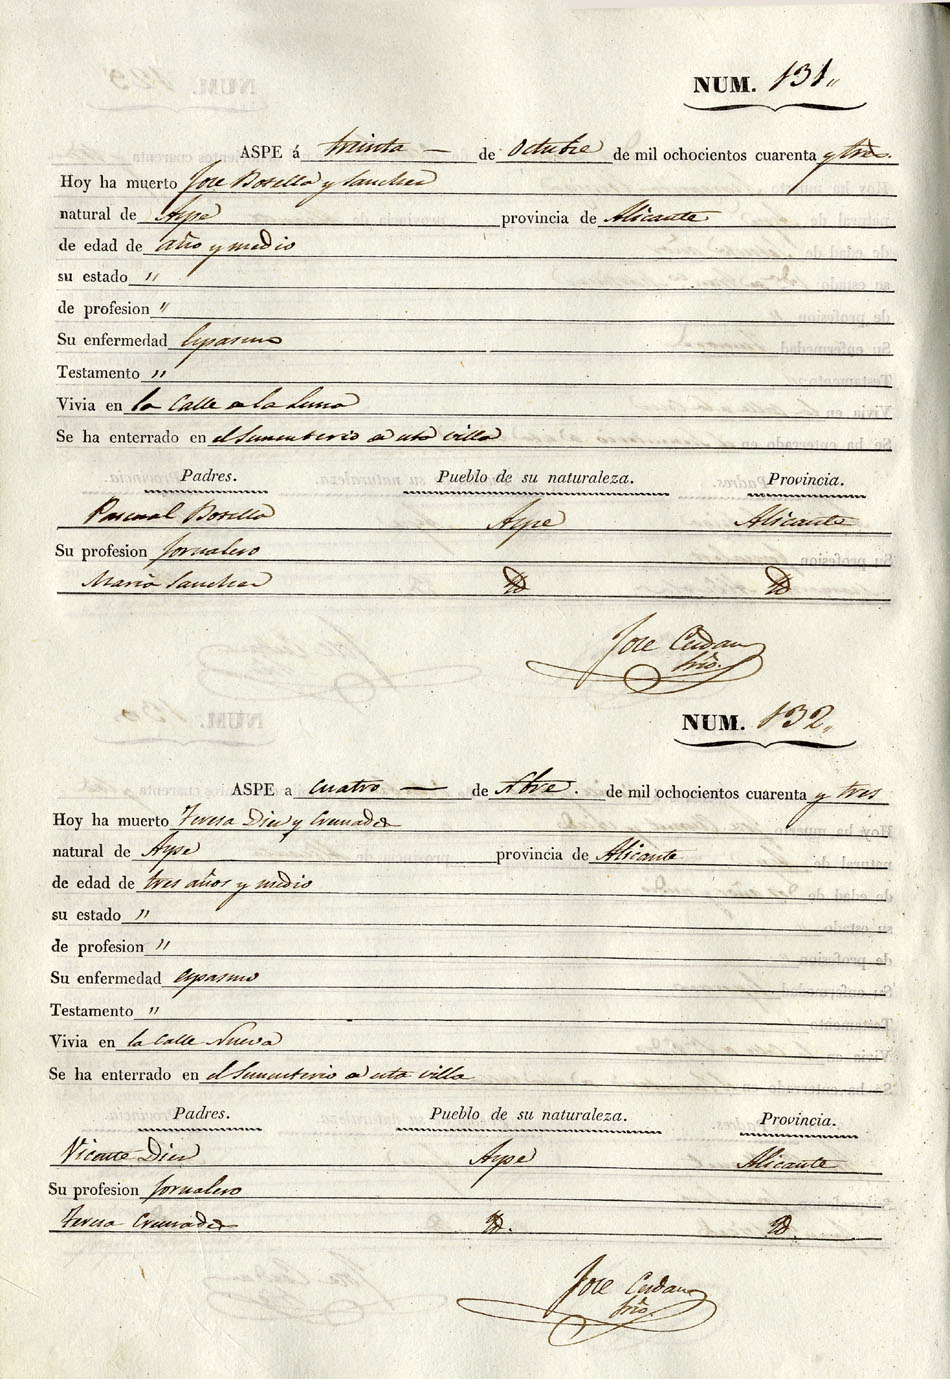 NUM. 131
ASPE á treinta de Octubre de mil ochocientos cuarenta y tres.
Hoy ha muerto Jose Botella y Sanchez
natural de Aspe provincia de Alicante
de edad de año y medio
su estado "
de profesion "
Su enfermedad Espasmo
Testamento "
Vivia en la Calle de la Luna
Se ha enterrado en el Sementerio de esta villa
Padres. Pueblo de su naturaleza. Provincia.
Pascual Botella Aspe Alicante
Su profesion Jornalero
Maria Sanchez Id Id
Jose
NUM. 132
ASPE a cuatro de Nbre. de mil ochocientos cuarenta y tres
Hoy ha muerto Teresa Diez y Cremades
natural de Aspe provincia de Alicante
de edad de tres años y medio
su estado "
de profesion "
Su enfermedad espasmo
Testamento "
Vivia en la Calle Nueva
Se ha enterrado en el Sementerio de esta villa
Padres. Pueblo de su naturaleza. Provincia.
Vicente Diez Aspe Alicante
Su profesion Jornalero
Teresa Cremades Id. Id.
Jose